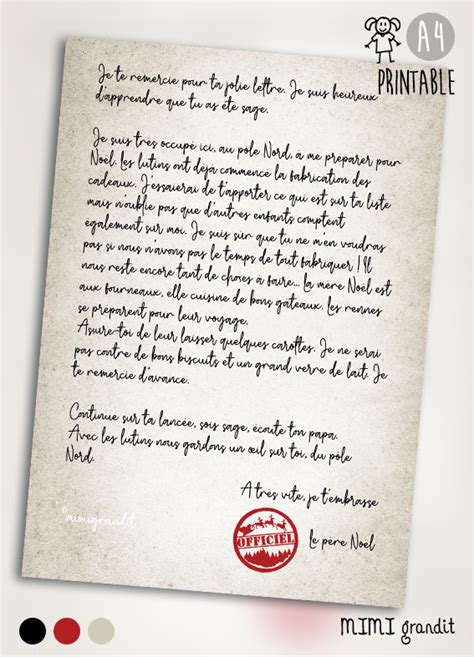 A4
PRINTABLE
Je te remercie pour ta jolie lettre. Je suis heureux
d'apprendre que tu as été sage.
Je suis très occupé ici, au pôle Nord, à me préparer pour
Noël. Les lutins ont déjà commencé la fabrication des
cadeaux. J'essaierai de t'apporter ce qui est sur ta liste
mais n'oublie pas que d'autres enfants comptent
également sur moi. Je suis sûr que tu ne m'en voudras
pas si nous n'avons pas le temps de tout fabriquer ! Il
nous reste encore tant de choses à faire... La mère Noël est
aux fourneaux, elle cuisine de bons gâteaux. Les rennes
se préparent pour leur voyage.
Assure-toi de leur laisser quelques carottes. Je ne serai
pas contre de bons biscuits et un grand verre de lait. Je
te remercie d'avance.
Continue sur ta lancée, sois sage, écoute ton papa.
Avec les lutins nous gardons un œil sur toi, du pôle
Nord.
A très vite, je t'embrasse
©mimigrandit
OFFICIEL
Le père Noël
MIMI grandit